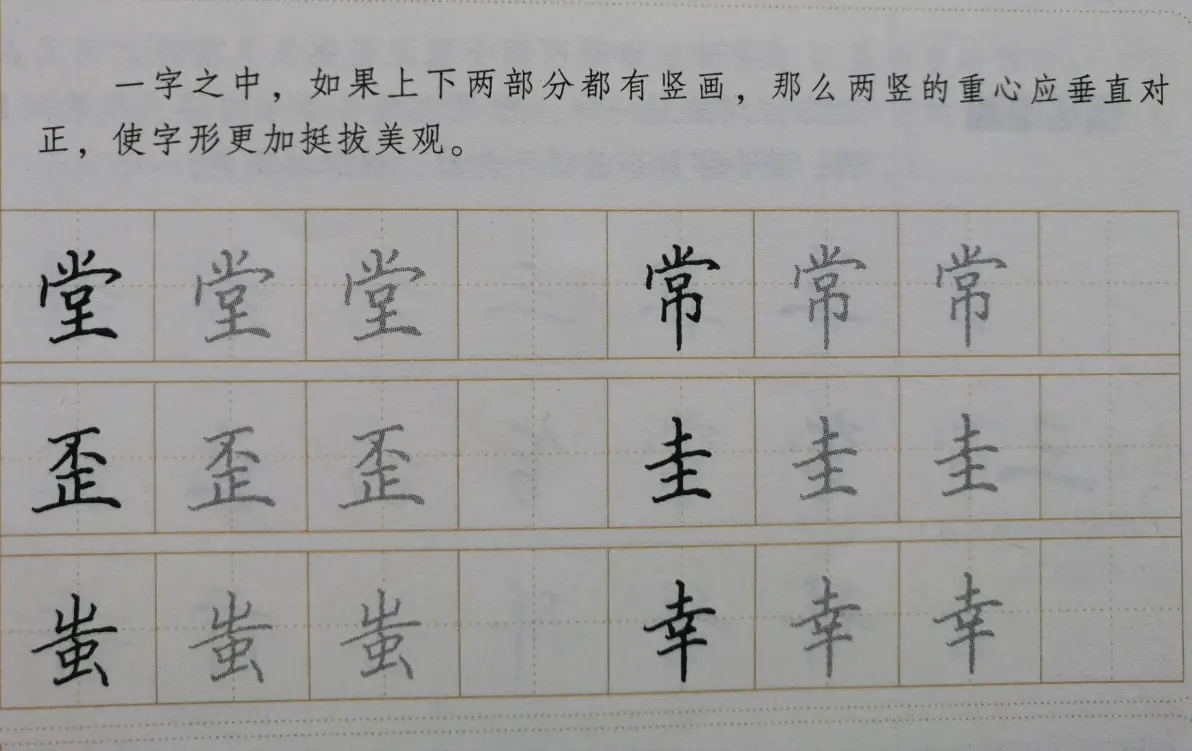 一字之中，如果上下两部分都有竖画，那么两竖的重心应垂直对
正，使字形更加挺拔美观。
堂 堂 堂 常 常 常
歪 歪 歪 圭 圭 圭
蚩 蚩 蚩 幸 幸 幸